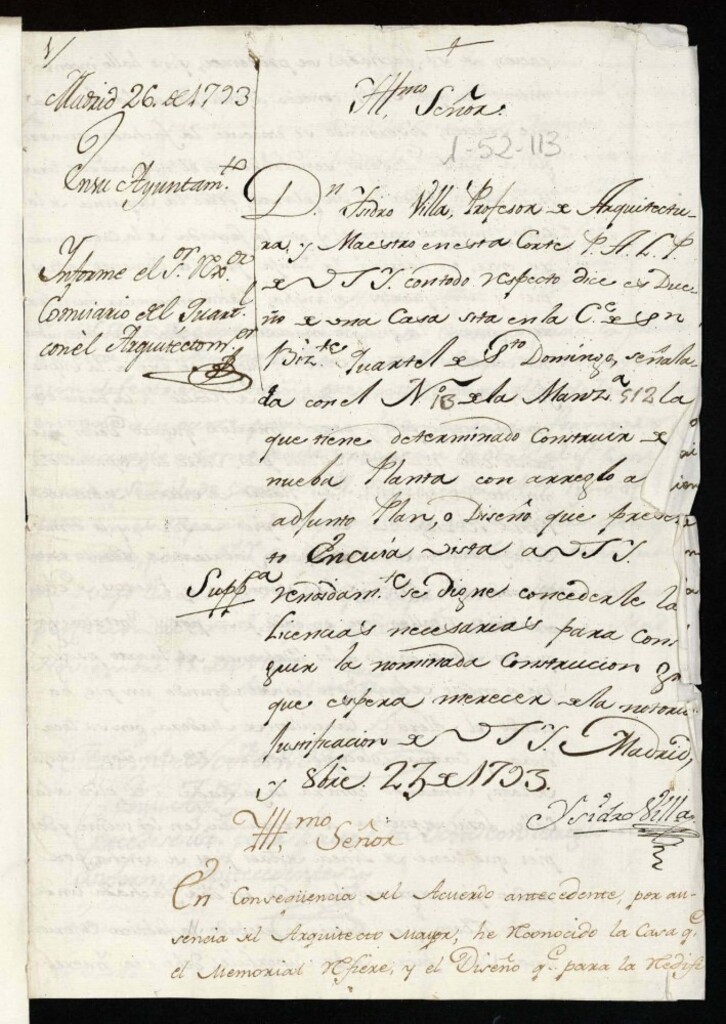 1/
Madrid 26. de 1793
En su Ayuntam.to
Informe el S.or Rex.or
Comisario del Quart.l
con el Arquitecto m.or
Ill.mo Señor.
1-52-113
D.n Isidro Villa, Profesor de Arquitectu-
ra, y Maestro en esta Corte P. A. L. P.
de V.S.Y. con todo respecto dice es Due-
ño de una Casa sita en la C.e de Sn
Biz.te Quartel de S.to Domingo, señala-
da con el N.o 13 de la Manz.a 512 la
que tiene determinado Construir de
nueba Planta con arreglo a
adjunto Plan, o Diseño que presen-
to En cuia vista a V.S.Y.
Supp.ca
rendidam.te se digne concederle la
Licencias necesarias para Conse
guir la nominada Construcion
que espera merecer de la notoria
Justificacion de V.S.Y. Madrid,
y 8bre. 23 de 1793.
Ysidro Villa
Ill.mo Señor
En Conseqüencia del Acuerdo antecedente, por au-
sencia del Arquitecto Mayor, he reconocido la Casa q.e
el Memorial refiere, y el Diseño q.e para la redifi